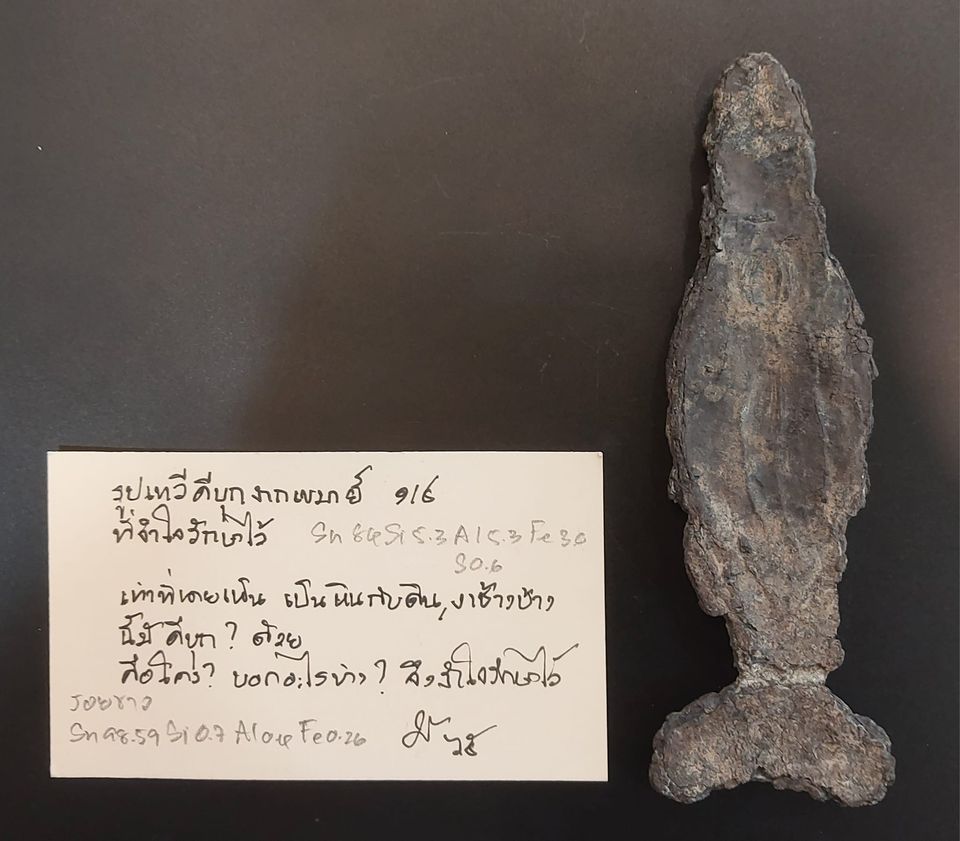 รูปเทวีดีบุกจากพม่า ๑/๕
ที่จำใจรักษาไว้
Sn 84 Si 5.3 Al 5.3 Fe 3.0
S 0.6
เท่าที่เคยเห็น เป็นหินกับดิน, งาช้างบ้าง
นี้มี ดีบุก? ด้วย
คือใคร? บอกอะไรบ้าง? จึงจำใจรักษาไว้
รอยขาว
Sn 98.59 Si 0.7 Al 0.4 Fe 0.26